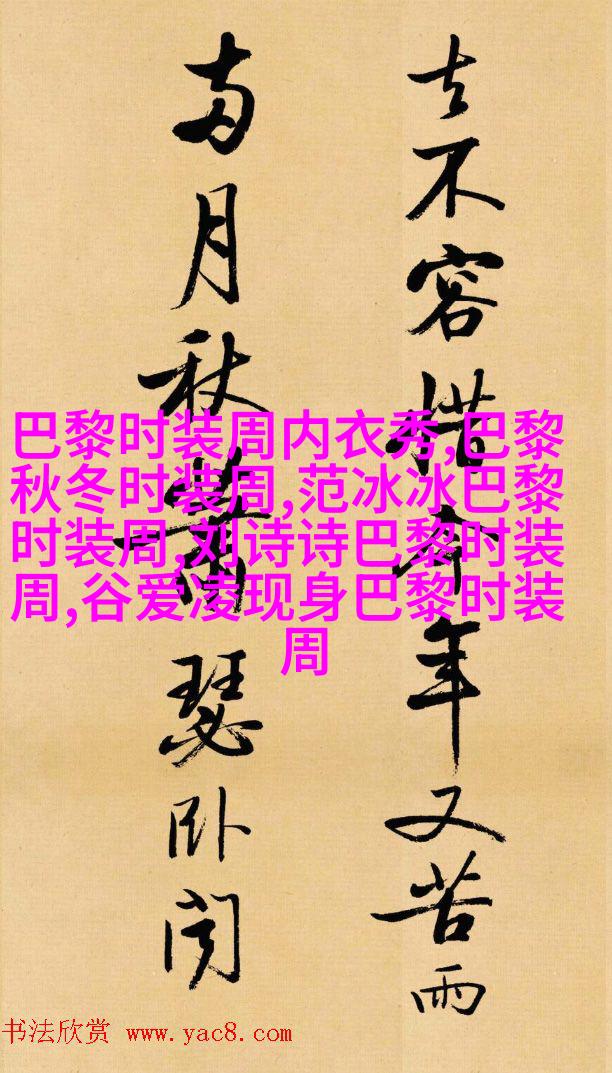 去不容惜今年又苦雨
兩月秋蕭瑟卧聞
巴黎时装周内衣秀,巴黎
秋冬时装周,范冰冰巴黎
时装周,刘诗诗巴黎时装
周,谷爱凌现身巴黎时装
周
书法欣赏 www.yac8.com